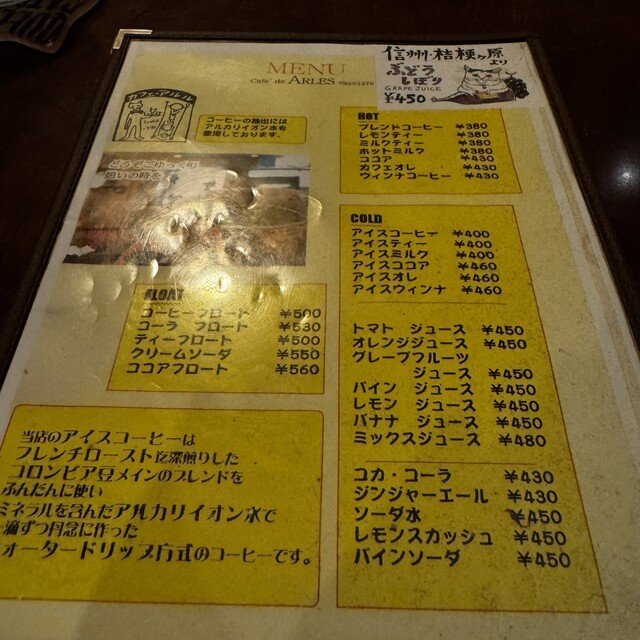 MENU
Cafe' de ARLES Since1978
信州・桔梗ヶ原より
ぶどうしぼり
GRAPE JUICE
¥450
カフェ・アルル
コーヒーの抽出には
アルカリイオン水を
使用しております。
どうぞごゆっくり
憩いの時を
HOT
ブレンドコーヒー ¥380
レモンティー ¥380
ミルクティー ¥380
ホットミルク ¥380
ココア ¥430
カフェオレ ¥430
ウィンナコーヒー ¥430
COLD
アイスコーヒー ¥400
アイスティー ¥400
アイスミルク ¥400
アイスココア ¥460
アイスオレ ¥460
アイスウィンナ ¥460
トマト ジュース ¥450
オレンジジュース ¥450
グレープフルーツ
ジュース ¥450
パイン ジュース ¥450
レモン ジュース ¥450
バナナ ジュース ¥450
ミックスジュース ¥480
コカ・コーラ ¥430
ジンジャーエール ¥430
ソーダ水 ¥450
レモンスカッシュ ¥450
パインソーダ ¥450
FLOAT
コーヒーフロート ¥500
コーラ フロート ¥530
ティーフロート ¥500
クリームソーダ ¥550
ココアフロート ¥560
当店のアイスコーヒーは
フレンチロースト迄深煎りした
コロンビア豆メインのブレンドを
ふんだんに使い
ミネラルを含んだアルカリイオン水で
滴ずつ丹念に作った
ォータードリップ方式のコーヒーです。